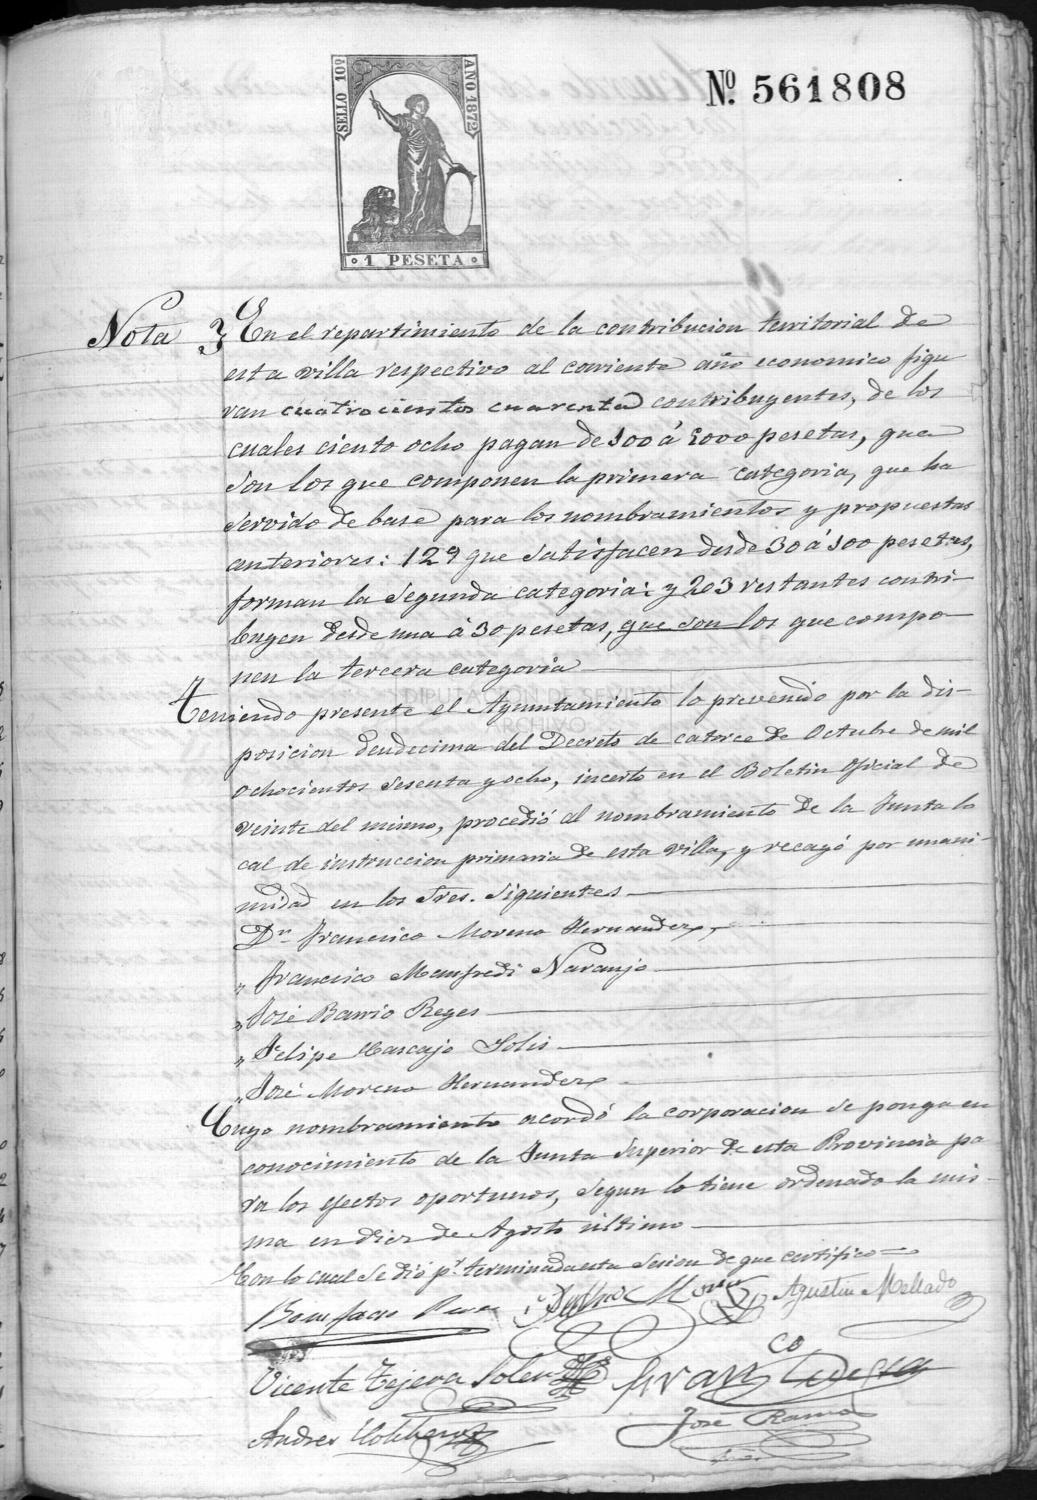 SELLO 10º
AÑO 1872
1 PESETA
Nº 561808
Nota 3 En el repartimiento de la contribucion territorial de
esta villa respectivo al corriente año economico figu
ran cuatrocientos cuarenta contribuyentes, de los
cuales ciento ocho pagan de 100 á 2000 pesetas, que
son los que componen la primera categoria, que ha
servido de base para los nombramientos y propuestas
anteriores: 129 que satisfacen desde 30 á 100 pesetas,
forman la segunda categoria: y 203 restantes contri-
buyen desde una á 30 pesetas, que son los que compo-
nen la tercera categoria
Teniendo presente el Ayuntamiento lo prevenido por la dis-
posicion duodecima del Decreto de catorce de Octubre de mil
ochocientos sesenta y ocho, incerto en el Boletin Oficial de
veinte del mismo, procedió al nombramiento de la Junta lo
cal de instruccion primaria de esta villa, y recayó por unani-
midad en los Sres. siguientes
Dn. Francisco Moreno Hernandez,
" Francisco Manfredi Naranjo
" José Barrio Reyes
" Felipe Cascajo Solis
" José Moreno Hernandez
Cuyo nombramiento acordó la corporacion se ponga en
conocimiento de la Junta Superior de esta Provincia pa
ra los efectos oportunos, segun lo tiene ordenado la mis-
ma en diez de Agosto último
Con lo cual se dió pr. terminada esta sesion de que certifico=
DIPUTACIÓN DE SEVILLA
ARCHIVO
Bonifacio Agustin Mellado
Vicente Tejera Soler Franco
Andres José Ramos